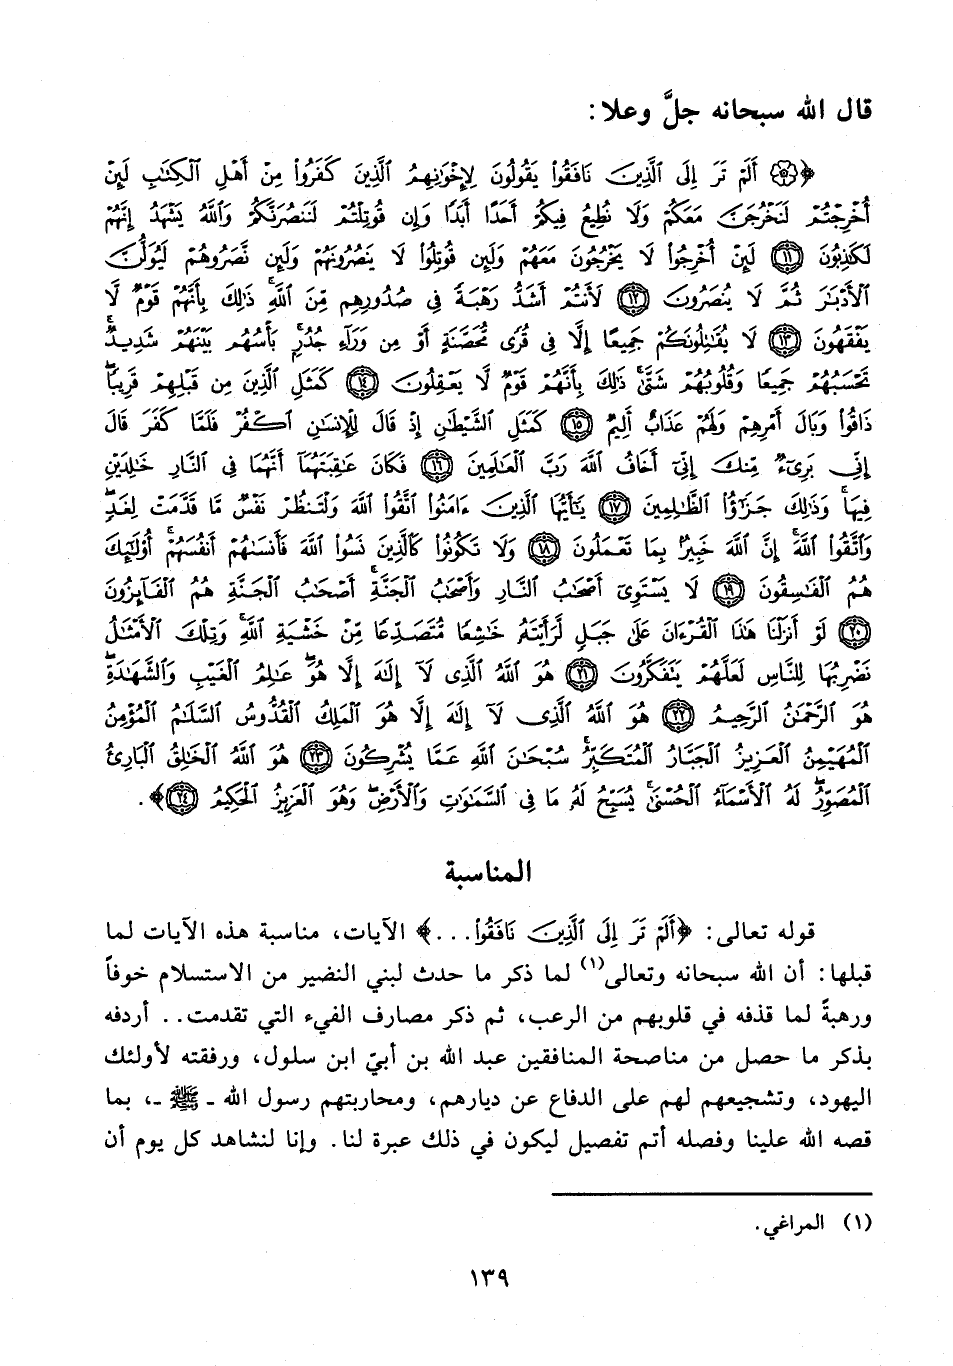 قال الله سبحانه جلَّ وعلا:
﴿۞ أَلَمْ تَرَ إِلَى ٱلَّذِينَ نَافَقُوا۟ يَقُولُونَ لِإِخْوَٰنِهِمُ ٱلَّذِينَ كَفَرُوا۟ مِنْ أَهْلِ ٱلْكِتَٰبِ لَئِنْ
أُخْرِجْتُمْ لَنَخْرُجَنَّ مَعَكُمْ وَلَا نُطِيعُ فِيكُمْ أَحَدًا أَبَدًا وَإِن قُوتِلْتُمْ لَنَنصُرَنَّكُمْ وَٱللَّهُ يَشْهَدُ إِنَّهُمْ
لَكَٰذِبُونَ ﴿١١﴾ لَئِنْ أُخْرِجُوا۟ لَا يَخْرُجُونَ مَعَهُمْ وَلَئِن قُوتِلُوا۟ لَا يَنصُرُونَهُمْ وَلَئِن نَّصَرُوهُمْ لَيُوَلُّنَّ
ٱلْأَدْبَٰرَ ثُمَّ لَا يُنصَرُونَ ﴿١٢﴾ لَأَنتُمْ أَشَدُّ رَهْبَةً فِى صُدُورِهِم مِّنَ ٱللَّهِ ۚ ذَٰلِكَ بِأَنَّهُمْ قَوْمٌ لَّا
يَفْقَهُونَ ﴿١٣﴾ لَا يُقَٰتِلُونَكُمْ جَمِيعًا إِلَّا فِى قُرًى مُّحَصَّنَةٍ أَوْ مِن وَرَآءِ جُدُرٍۭ ۚ بَأْسُهُم بَيْنَهُمْ شَدِيدٌ ۚ
تَحْسَبُهُمْ جَمِيعًا وَقُلُوبُهُمْ شَتَّىٰ ۚ ذَٰلِكَ بِأَنَّهُمْ قَوْمٌ لَّا يَعْقِلُونَ ﴿١٤﴾ كَمَثَلِ ٱلَّذِينَ مِن قَبْلِهِمْ قَرِيبًا ۖ
ذَاقُوا۟ وَبَالَ أَمْرِهِمْ وَلَهُمْ عَذَابٌ أَلِيمٌ ﴿١٥﴾ كَمَثَلِ ٱلشَّيْطَٰنِ إِذْ قَالَ لِلْإِنسَٰنِ ٱكْفُرْ فَلَمَّا كَفَرَ قَالَ
إِنِّى بَرِىٓءٌ مِّنكَ إِنِّىٓ أَخَافُ ٱللَّهَ رَبَّ ٱلْعَٰلَمِينَ ﴿١٦﴾ فَكَانَ عَٰقِبَتَهُمَآ أَنَّهُمَا فِى ٱلنَّارِ خَٰلِدَيْنِ
فِيهَا ۚ وَذَٰلِكَ جَزَٰٓؤُا۟ ٱلظَّٰلِمِينَ ﴿١٧﴾ يَٰٓأَيُّهَا ٱلَّذِينَ ءَامَنُوا۟ ٱتَّقُوا۟ ٱللَّهَ وَلْتَنظُرْ نَفْسٌ مَّا قَدَّمَتْ لِغَدٍ ۖ
وَٱتَّقُوا۟ ٱللَّهَ ۚ إِنَّ ٱللَّهَ خَبِيرٌۢ بِمَا تَعْمَلُونَ ﴿١٨﴾ وَلَا تَكُونُوا۟ كَٱلَّذِينَ نَسُوا۟ ٱللَّهَ فَأَنسَىٰهُمْ أَنفُسَهُمْ ۚ أُو۟لَٰٓئِكَ
هُمُ ٱلْفَٰسِقُونَ ﴿١٩﴾ لَا يَسْتَوِىٓ أَصْحَٰبُ ٱلنَّارِ وَأَصْحَٰبُ ٱلْجَنَّةِ ۚ أَصْحَٰبُ ٱلْجَنَّةِ هُمُ ٱلْفَآئِزُونَ
﴿٢٠﴾ لَوْ أَنزَلْنَا هَٰذَا ٱلْقُرْءَانَ عَلَىٰ جَبَلٍ لَّرَأَيْتَهُۥ خَٰشِعًا مُّتَصَدِّعًا مِّنْ خَشْيَةِ ٱللَّهِ ۚ وَتِلْكَ ٱلْأَمْثَٰلُ
نَضْرِبُهَا لِلنَّاسِ لَعَلَّهُمْ يَتَفَكَّرُونَ ﴿٢١﴾ هُوَ ٱللَّهُ ٱلَّذِى لَآ إِلَٰهَ إِلَّا هُوَ ۖ عَٰلِمُ ٱلْغَيْبِ وَٱلشَّهَٰدَةِ ۖ
هُوَ ٱلرَّحْمَٰنُ ٱلرَّحِيمُ ﴿٢٢﴾ هُوَ ٱللَّهُ ٱلَّذِى لَآ إِلَٰهَ إِلَّا هُوَ ٱلْمَلِكُ ٱلْقُدُّوسُ ٱلسَّلَٰمُ ٱلْمُؤْمِنُ
ٱلْمُهَيْمِنُ ٱلْعَزِيزُ ٱلْجَبَّارُ ٱلْمُتَكَبِّرُ ۚ سُبْحَٰنَ ٱللَّهِ عَمَّا يُشْرِكُونَ ﴿٢٣﴾ هُوَ ٱللَّهُ ٱلْخَٰلِقُ ٱلْبَارِئُ
ٱلْمُصَوِّرُ ۖ لَهُ ٱلْأَسْمَآءُ ٱلْحُسْنَىٰ ۚ يُسَبِّحُ لَهُۥ مَا فِى ٱلسَّمَٰوَٰتِ وَٱلْأَرْضِ ۖ وَهُوَ ٱلْعَزِيزُ ٱلْحَكِيمُ ﴿٢٤﴾﴾.
المناسبة
قوله تعالى: ﴿أَلَمْ تَرَ إِلَى ٱلَّذِينَ نَافَقُوا۟...﴾ الآيات، مناسبة هذه الآيات لما
قبلها: أن الله سبحانه وتعالى(١) لما ذكر ما حدث لبني النضير من الاستسلام خوفاً
ورهبةً لما قذفه في قلوبهم من الرعب، ثم ذكر مصارف الفيء التي تقدمت.. أردفه
بذكر ما حصل من مناصحة المنافقين عبد الله بن أبيّ ابن سلول، ورفقته لأولئك
اليهود، وتشجيعهم لهم على الدفاع عن ديارهم، ومحاربتهم رسول الله ـ ﷺ ـ، بما
قصه الله علينا وفصله أتم تفصيل ليكون في ذلك عبرة لنا. وإنا لنشاهد كل يوم أن
(١) المراغي.
١٣٩